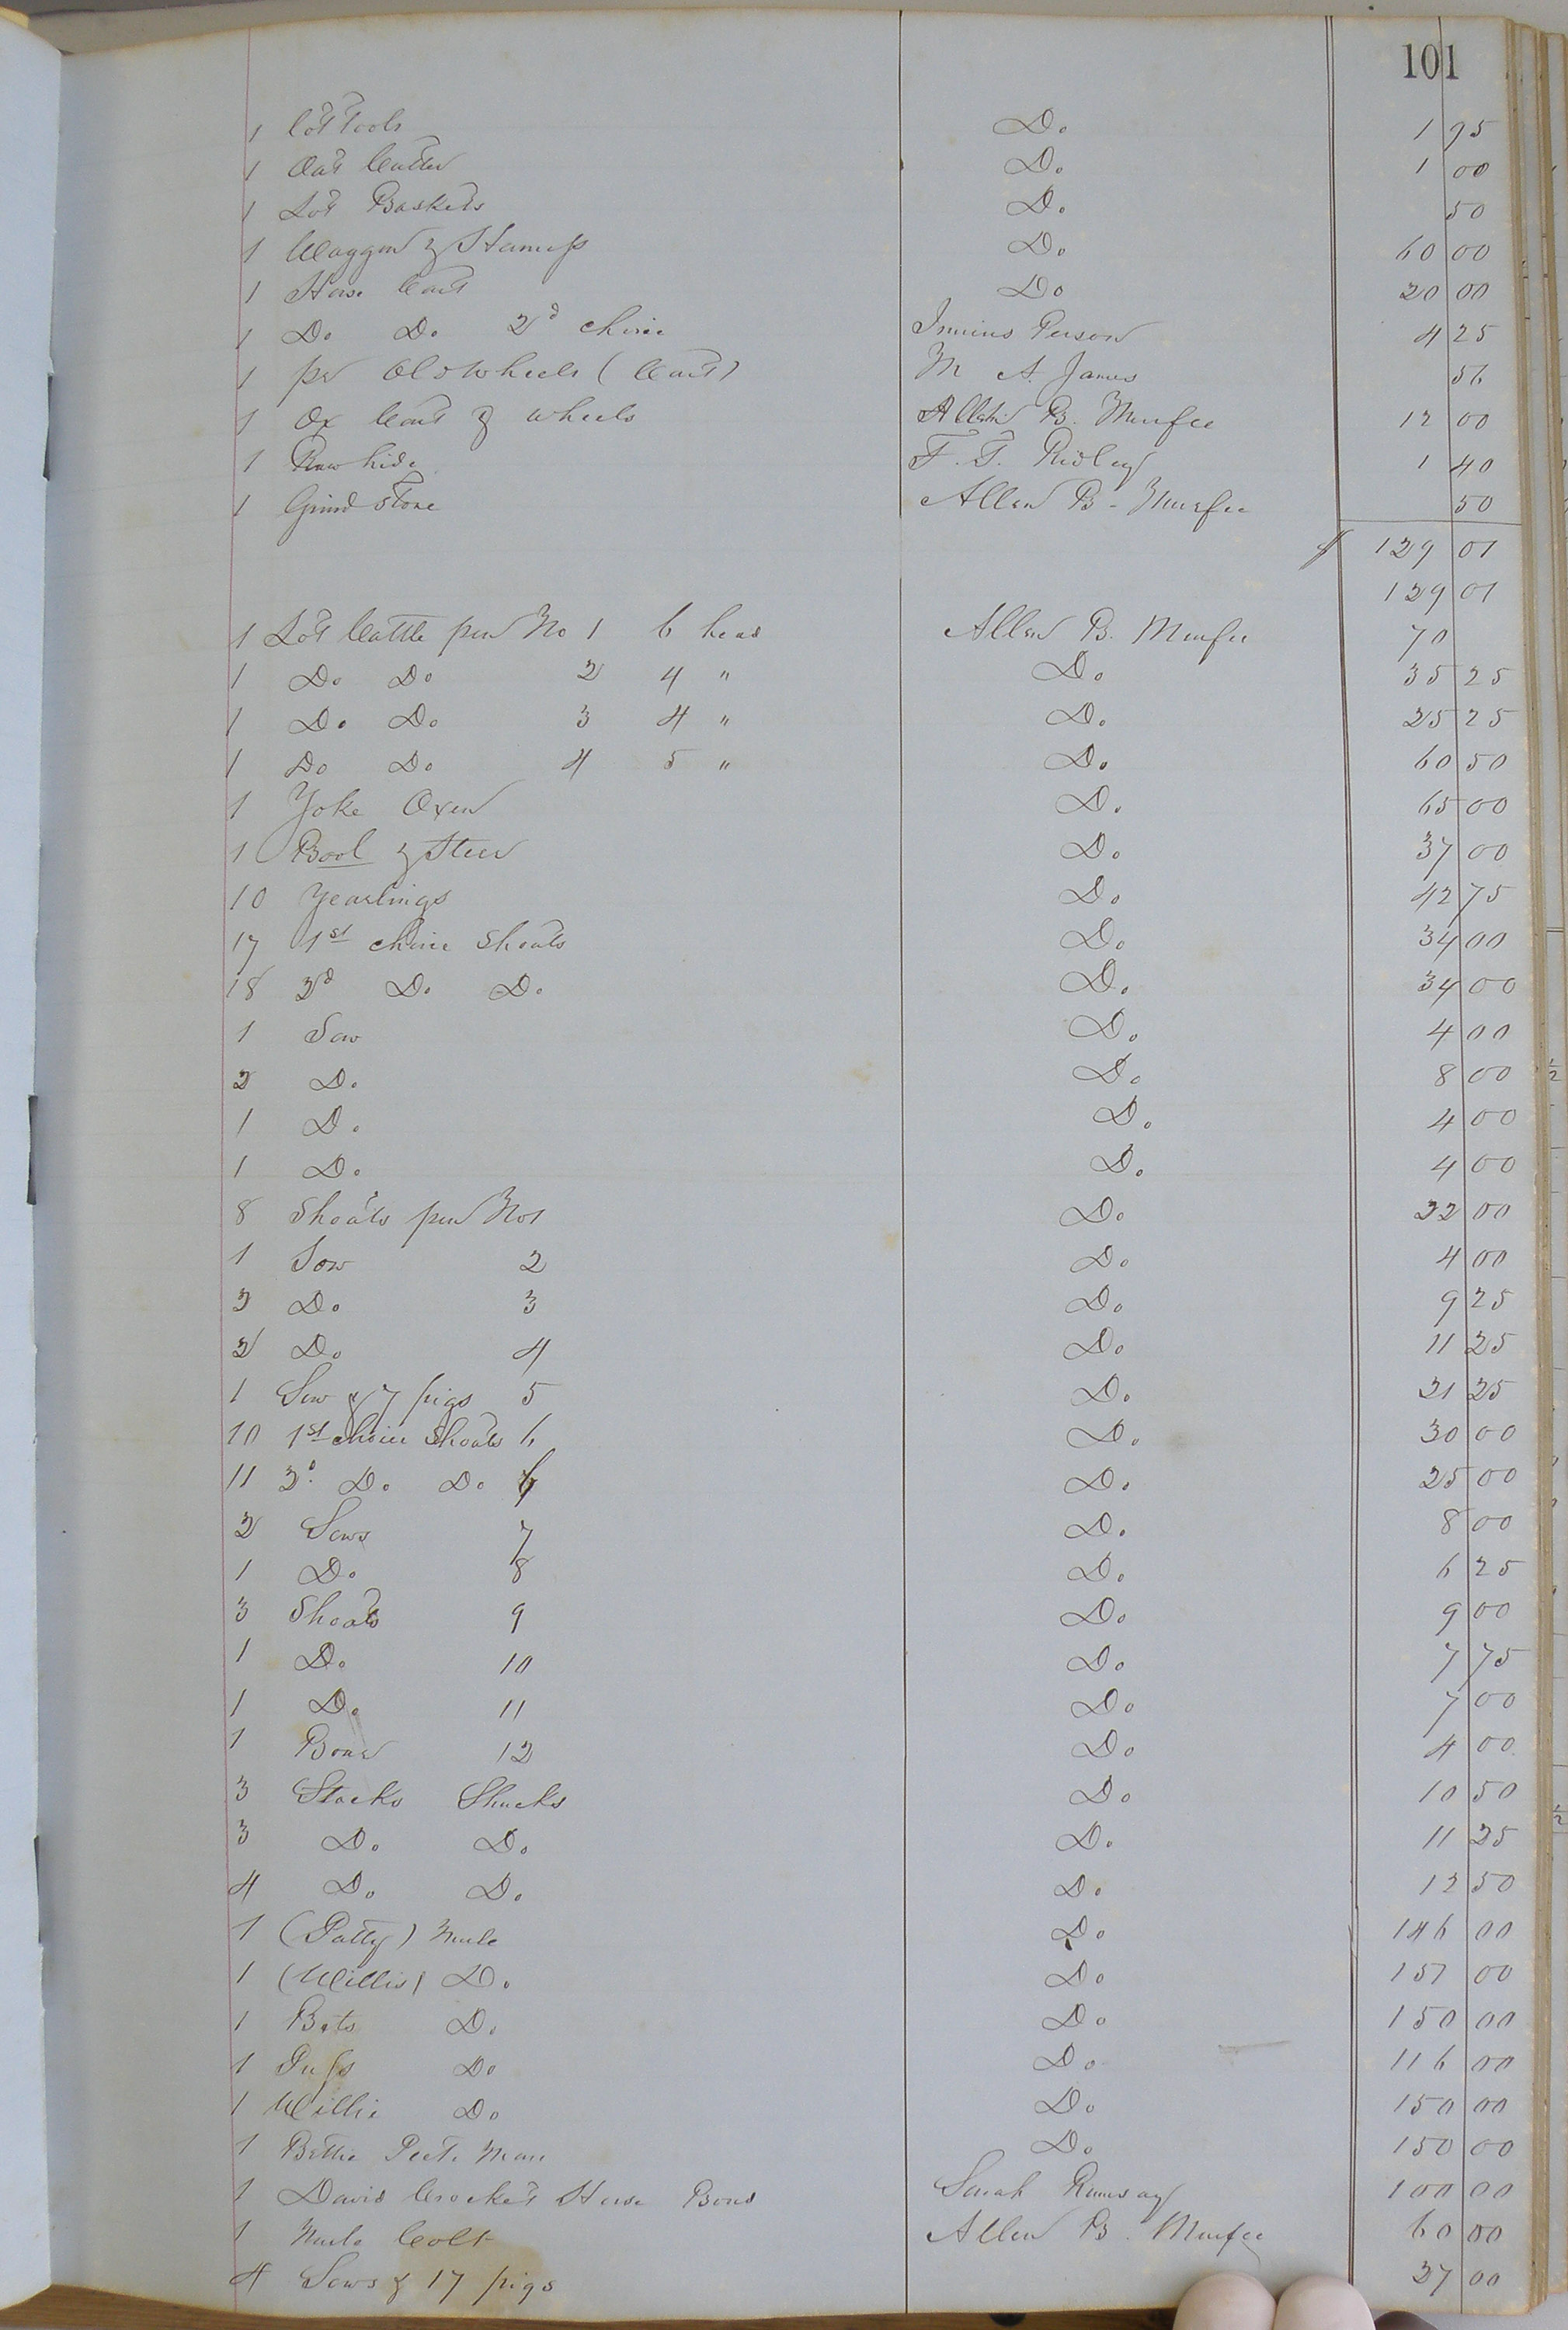 101
1 lot Tools Do 1 95
1 Oat Cutter Do 1 00
1 Lot Baskets Do 50
1 Waggon & Do 60 00
1 Horse Cart Do 20 00
1 Do Do 2d choice Person 4 25
1 pr Old Wheels (Cart) M A. James 56
1 Ox Cart & wheels Allen B. Murfee 12 00
1 Raw hide F. T. Ridley 1 40
1 Grind Stone Allen B. Murfee 50
129 01
129 01
1 Lot Cattle pen No 1 6 head Allen B. Murfee 70
1 Do Do 2 4 " Do 35 25
1 Do Do 3 4 " Do 25 25
1 Do Do 4 5 " Do 60 50
1 Yoke Oxen Do 65 00
1 Bool & Steer Do 37 00
10 Yearlings Do 42 75
17 1st choice Shoats Do 34 00
18 2d Do Do Do 34 00
1 Sow Do 4 00
2 Do Do 8 00
1 Do Do 4 00
1 Do Do 4 00
8 Shoats pen No 1 Do 22 00
1 Sow 2 Do 4 00
2 Do 3 Do 9 25
2 Do 4 Do 11 25
1 Sow & 7 pigs 5 Do 21 25
10 1st choice Shoats 6 Do 30 00
11 2d Do Do 6 Do 25 00
2 Sows 7 Do 8 00
1 Do 8 Do 6 25
3 Shoats 9 Do 9 00
1 Do 10 Do 7 75
1 Do 11 Do 7 00
1 Boar 12 Do 4 00
3 Stacks Shucks Do 10 50
3 Do Do Do 11 25
4 Do Do Do 12 50
1 (Patty) Mule Do 146 00
1 (Willis) Do Do 151 00
1 Do Do 150 00
1 Do Do 116 00
1 Willie Do Do 150 00
1 Bettie Mare Do 150 00
1 David Crocket Horse Bond Sarah Ramsay 100 00
1 Mule Colt Allen B. Murfee 60 00
4 Sows & 17 pigs 37 00